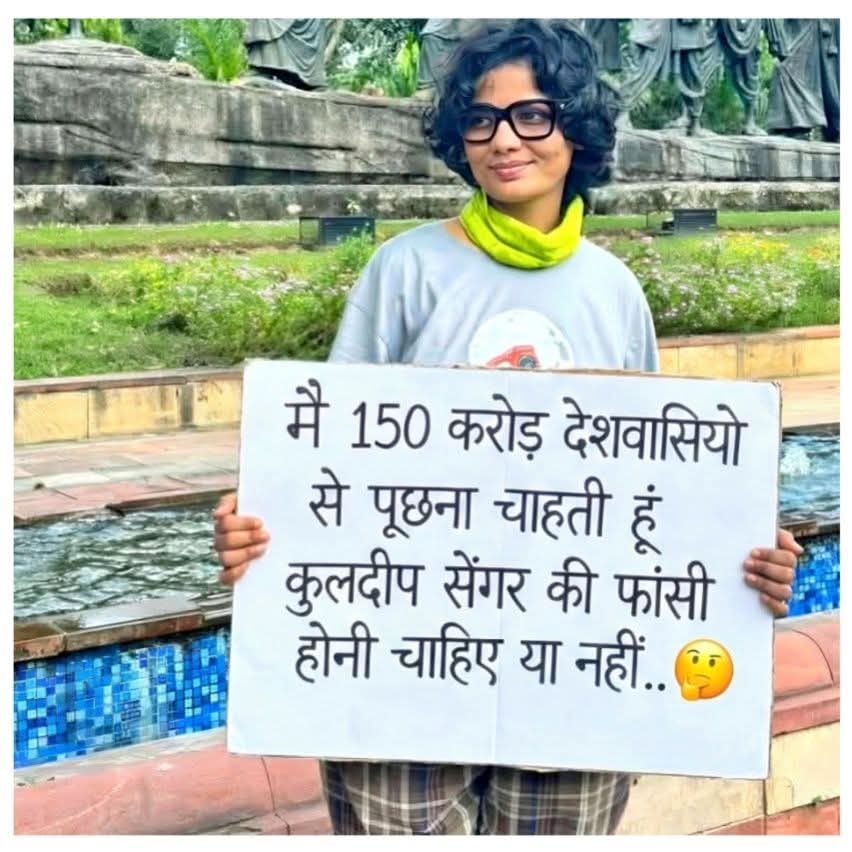 मै 150 करोड़ देशवासियो
से पूछना चाहती हूं
कुलदीप सेंगर की फांसी
होनी चाहिए या नहीं..🤔